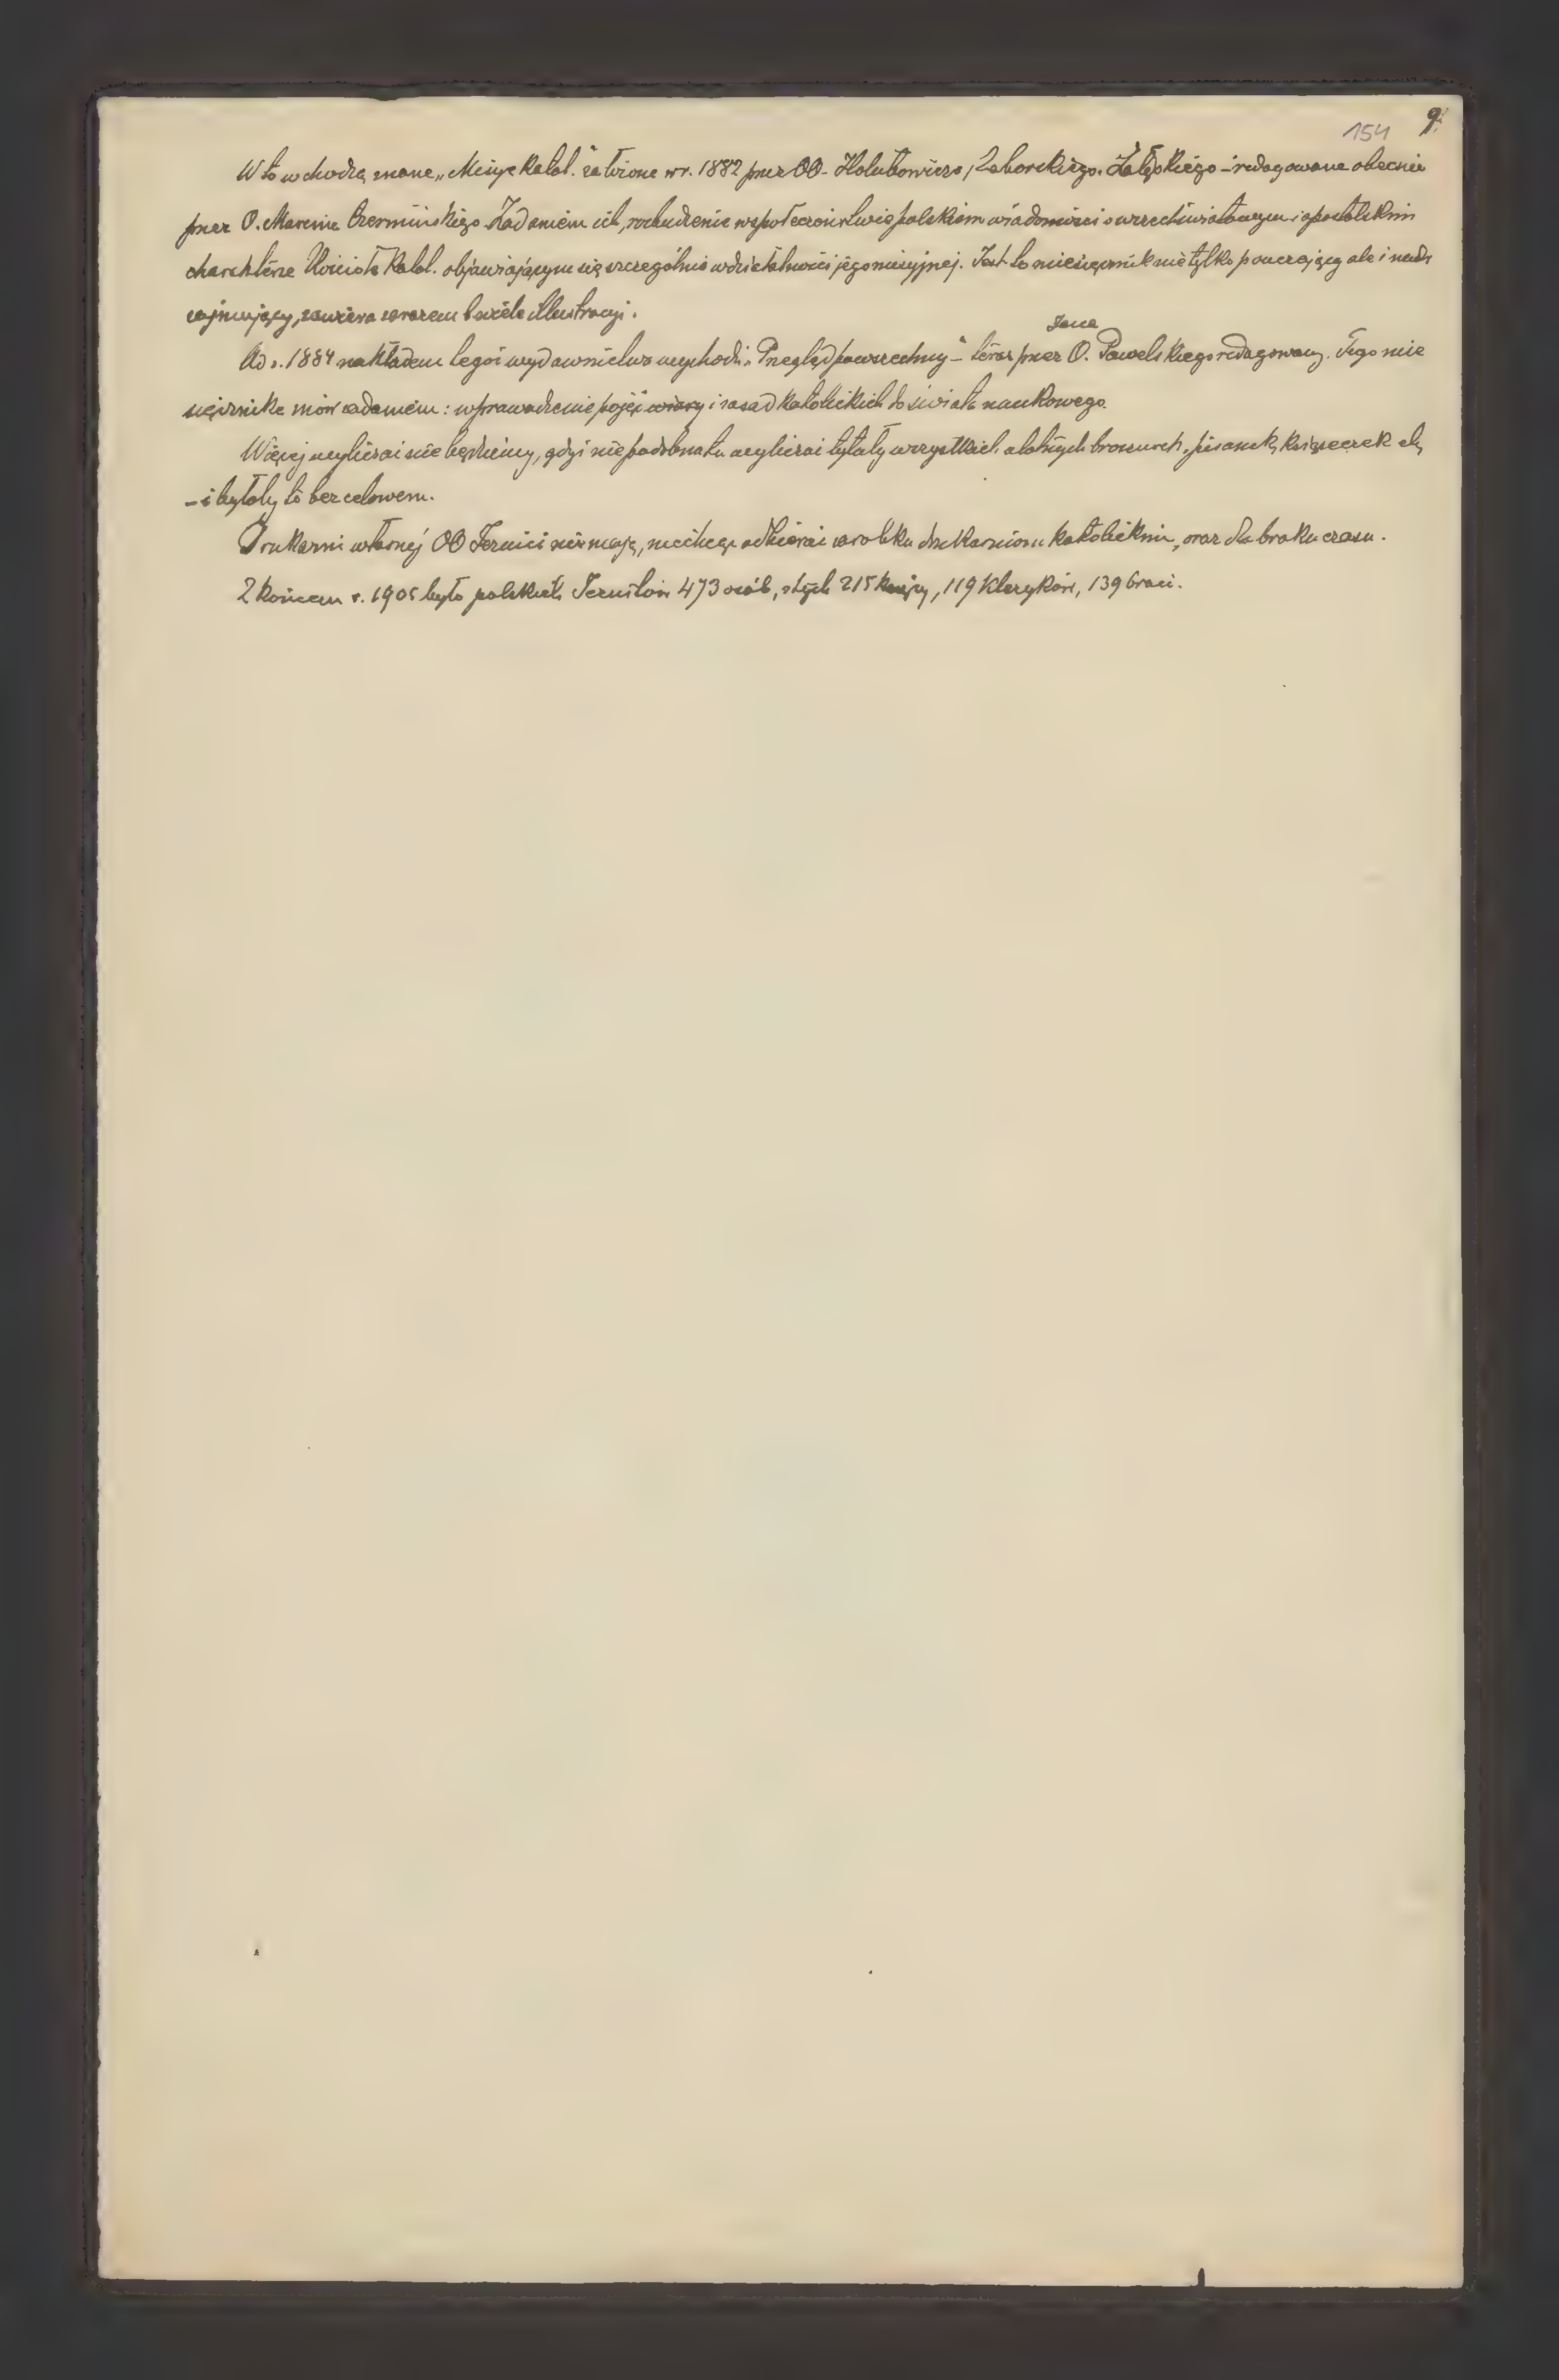 154 9.
W to wchodzą znane „Misye katol." założone w r. 1882 przez OO. Hołubowicza, Zaborskiego i Załęskiego – redagowane obecnie
przez O. Marcina Czermińskiego. Zadaniem ich, rozbudzenie w społeczeństwie polskiem wiadomości o wszechświatowym i apostolskim
charakterze Kościoła katol. objawiającym się szczególnie w działalności jego misyjnej. Jest to miesięcznik nie tylko pouczający ale i nader
zajmujący, zawiera zarazem b. wiele illustracyi.
Od r. 1884 nakładem tegoż wydawnictwa wychodzi „Przegląd powszechny" – teraz przez O. Jana Pawelskiego redagowany. Tego mie
sięcznika mów zadaniem: wprowadzenie pojęć wiary i zasad katolickich do świata naukowego.
Więcej wyliczać nie będziemy, gdyż niepodobna tu wyliczać tytuły wszystkich ulotnych broszurek, pisanek, książeczek etc
– i byłoby to bezcelowem.
Drukarni własnej OO Jezuici nie mają, nie chcąc odbierać zarobku drukarniom katolickim, oraz dla braku czasu.
Z końcem r. 1905 było polskich Jezuitów 473 osób, z tych 215 księży, 119 kleryków, 139 braci.